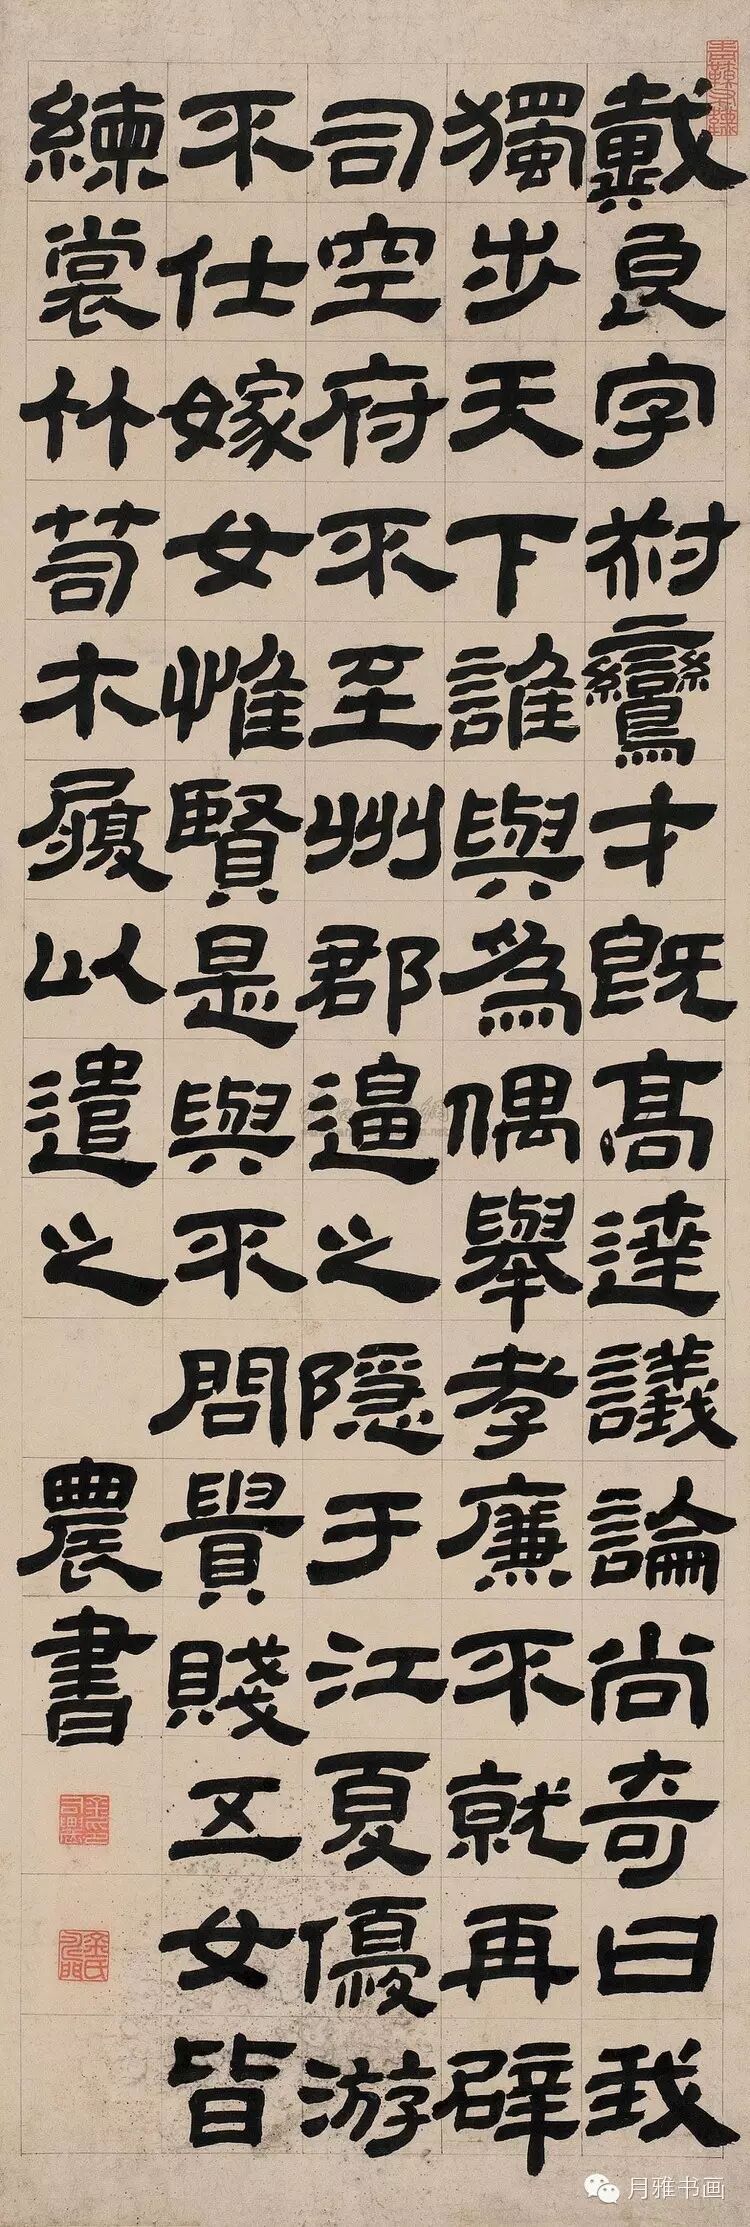 戴良字尗鸞才既高達議論尚奇曰我
獨步天下誰與為偶舉孝廉不就再辟
司空府不至州郡逼之隱于江夏優游
不仕嫁女惟賢是與不問貴賤五女皆
練裳竹笥木屐以遣之 農書
月雅书画